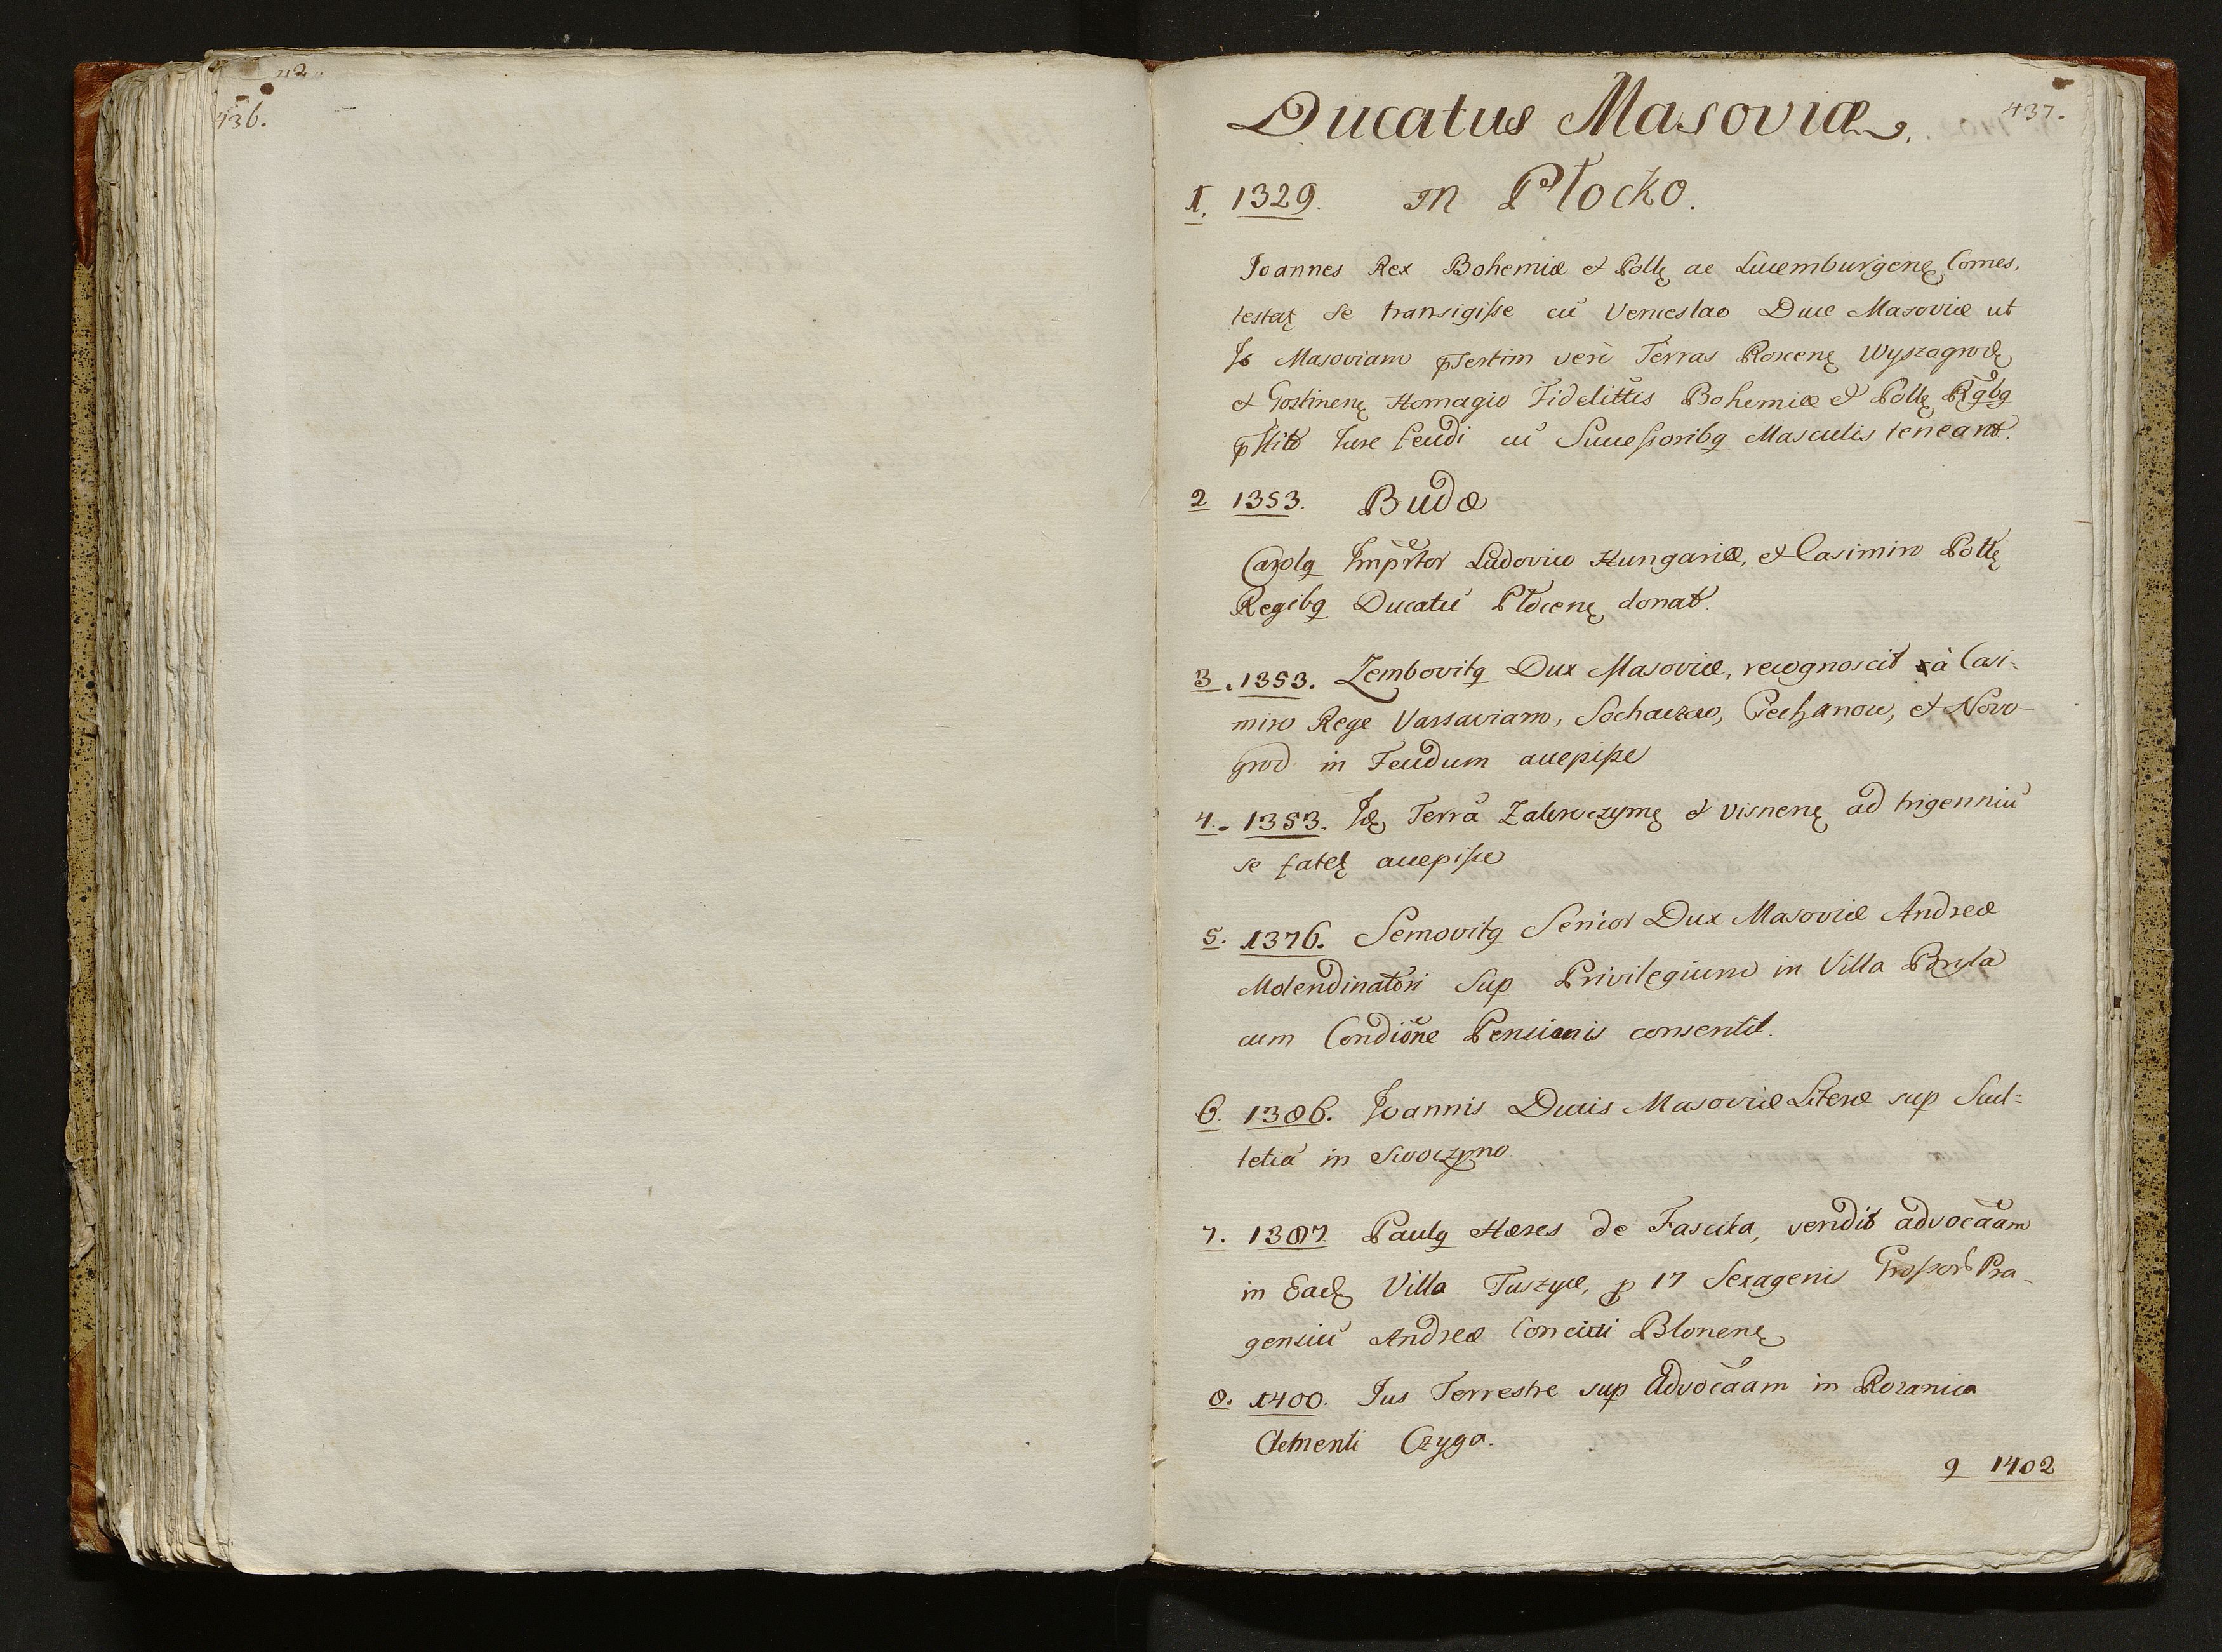 436.
437.
Ducatus Masoviæ.
1. 1329. in Płocko.
Joannes Rex Bohemiæ et Pollę ac Lucemburgenę Comes,
testatę se transigisse cū Venceslao Duce Masoviæ ut
Is Masoviam pſertim verò Terras Wyszogrodę
et Gostinenę Homagio Fidelittis Bohemiæ et Pollę Rgbq
pſtito Jure feudi cū Succeſsoribq Masculis teneant.
2 1353. Budæ
Carolq Imprtor Ludovico Hungariæ, et Casimiro Pollę
Regibq Ducatū Płocenę donat.
3. 1353. Zembovitq Dux Masoviæ, recognoscit à Casi-
miro Rege Varsaviam, Sochaczew, Ciechanow, et Novo-
grod in Feudum accepiſse
4. 1353. Idę Terrā Zakroczymę et Visnenę ad trigenniū
se fatetę accepiſse
5. 1376. Semovitq Senior Dux Masoviæ Andreæ
Molendinatori sup Privilegium in Villa Bryla
cum Condiōne Pensionis consentit.
6. 1386. Joannis Ducis Masoviæ Literæ sup Scul-
tetiā in Swoczyno.
7. 1387. Paulq Hæres de Fascita, vendit advocāam
in Eadę Villa Tuszyce, p 17 Sexagenis Groſsorb Pra-
gensiū Andreæ Concivi Blonenę
8. 1400. Jus Terrestre sup Advocāam in Rozanica
Clementi Czyga.
9 1402